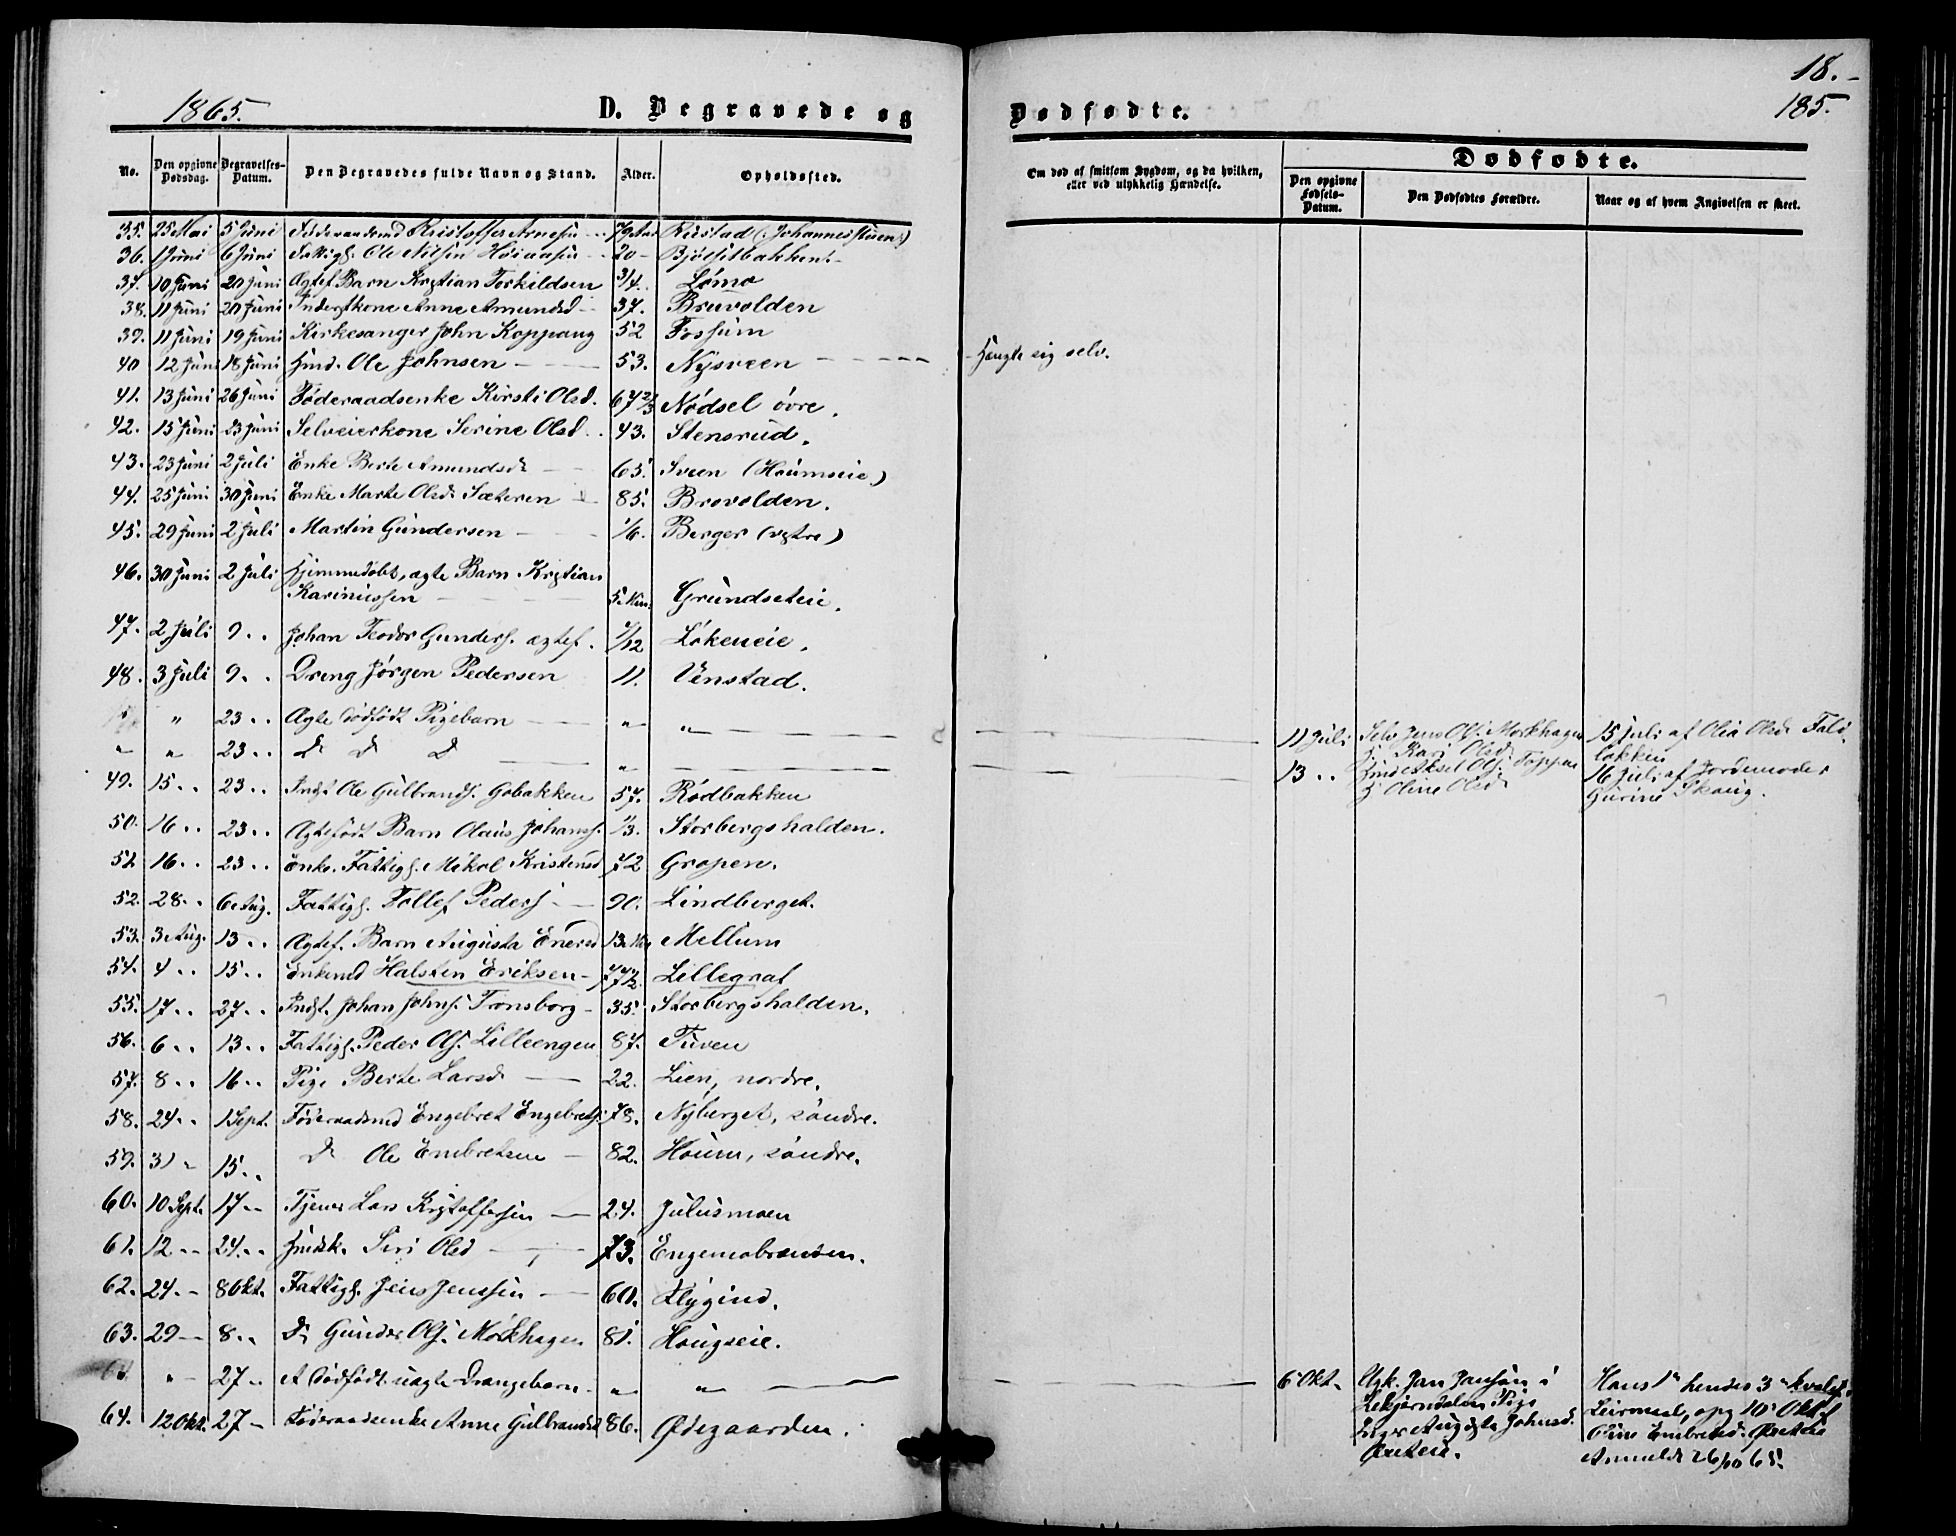 18.-
1865. D. Begravede og Dødfødte. 185.
No. Den opgivne Dødsdag. Begravelses-Datum. Den Begravedes fulde Navn og Stand. Alder. Opholdssted.
Om død af smitsom Sygdom, og da hvilken, eller ved ulykkelig Hændelse.
Dødfødte.
Den opgivne Fødsels-Datum. Den Dødfødtes Forældre. Naar og af hvem Angivelsen er skeet.
35. 25 Mai 5 Juni Kristoffer Arnesen 79 Rustad (Johannesstuen)
36. 1 Juni 6 Juni Ole Nilsen 20 - Bjølsetbakken.
37. 10 Juni 20 Juni Ægtef. Barn Kristian Torkildsen 3/4. Lømo
38. 11 Juni 20 Juni Inderstkone Anne Amundsd - 37. Bruvolden
39. 11 Juni 19 Juni Kirkesanger John Koppang 52 Fossum
40 12 Juni 18 Juni Hmd. Ole Johnsen - 53. Nysveen - - - - - Hængte sig selv.
41. 13 Juni 26 Juni Føderaadsenke Kirsti Olsd. 67 2/3 Nødsel øvre.
42. 15 Juni 23 Juni Selveierkone Serine Olsd. 43. Stensrud.
43. 23 Juni 2 Juli Enke Berte Amundsd: - 65. Sveen (Houmseie)
44. 25 Juni 30 Juni Enke Marte Olsd. Sæteren - 85. Brovolden.
45. 29 Juni 2 Juli Martin Gundersen - 1/6. Berger (vestre)
46. 30 Juni 2 Juli Hjemmedøbt, ægte Barn Kristian
Karinussen - 5 Min. Grundseteie.
47. 2 Juli 9 " Johan Teodor Gunders. ægtef. /12 Løkeneie.
48. 3 Juli 9 " Dreng Jørgen Pedersen 11. Venstad.
" 23 " Ægte dødfødt Pigebarn - " " - 11 Juli Selv. Jens Ols. Mørkhagen 15 Juli af Olea Olsd.
H. Kari Olsd.
" " 23 " D D D - " - 13 " Aksel Ols. Toppen 16 Juli af Jordemoder
H Oline Olsd. Gurine Skaug.
49. 15 " 23 " Indst. Ole Gulbrands. Gobakken 57. Rødbakken
50. 16 " 23 " Ægtefødt Barn Olaus Johans. 1/3. Storbergshalden.
51 16 " 23 " Enke. Fattigl. Mikal Kristensd 72 Gropen.
52. 28 " 6 Aug. Fattigl. Tollef Peders - 90. Lindberget.
53. 3 Aug. 13 " Ægtef. Barn Augusta Enersd 13 Mellum
54. 4 " 15 " Enkemd Halsten Eriksen - 77 1/2 Lillegrat
55. 17 " 27 " Indst. Johan Johns. Tronsborg - 35. Storbergshalden.
56. 6 " 13 " Fattigl. Peder Ols. Lilleengen 87. Tuven
57. 8 " 16 " Pige Berte Larsd - 22. Lien, nordre.
58. 24 " 1 Sept. Føderaadsmd Engebret Engebrets. 78. Nyberget, søndre.
59. 31 " 15 " D Ole Embretsen - 82. Houm, søndre.
60. 10 Sept. 17 " Tjener Lars Kristoffersen - 24. Julusmoen
61. 12 " 24 " Siri Olsd - 73. Engemobraaten.
62. 24 - 8 Okt. Fattigl. Jens Jenssen - 60. Flygind.
63. 29 - 8 " D Gunder Ols. Mørkhagen 81. Hougseie.
" 27 " Et dødfødt uægte Drengebarn - " " - 6 Okt. Ugk. Jan Jansøn i Hans 1ste hendes 3
Pige 10 Okt. af
Augusta Johnsd. Embretsd.
Anmeldt 26/10 65.
64. 12 Okt. 27 - Føderaadsenke Anne Gulbrandsd 86. Ødegaarden.